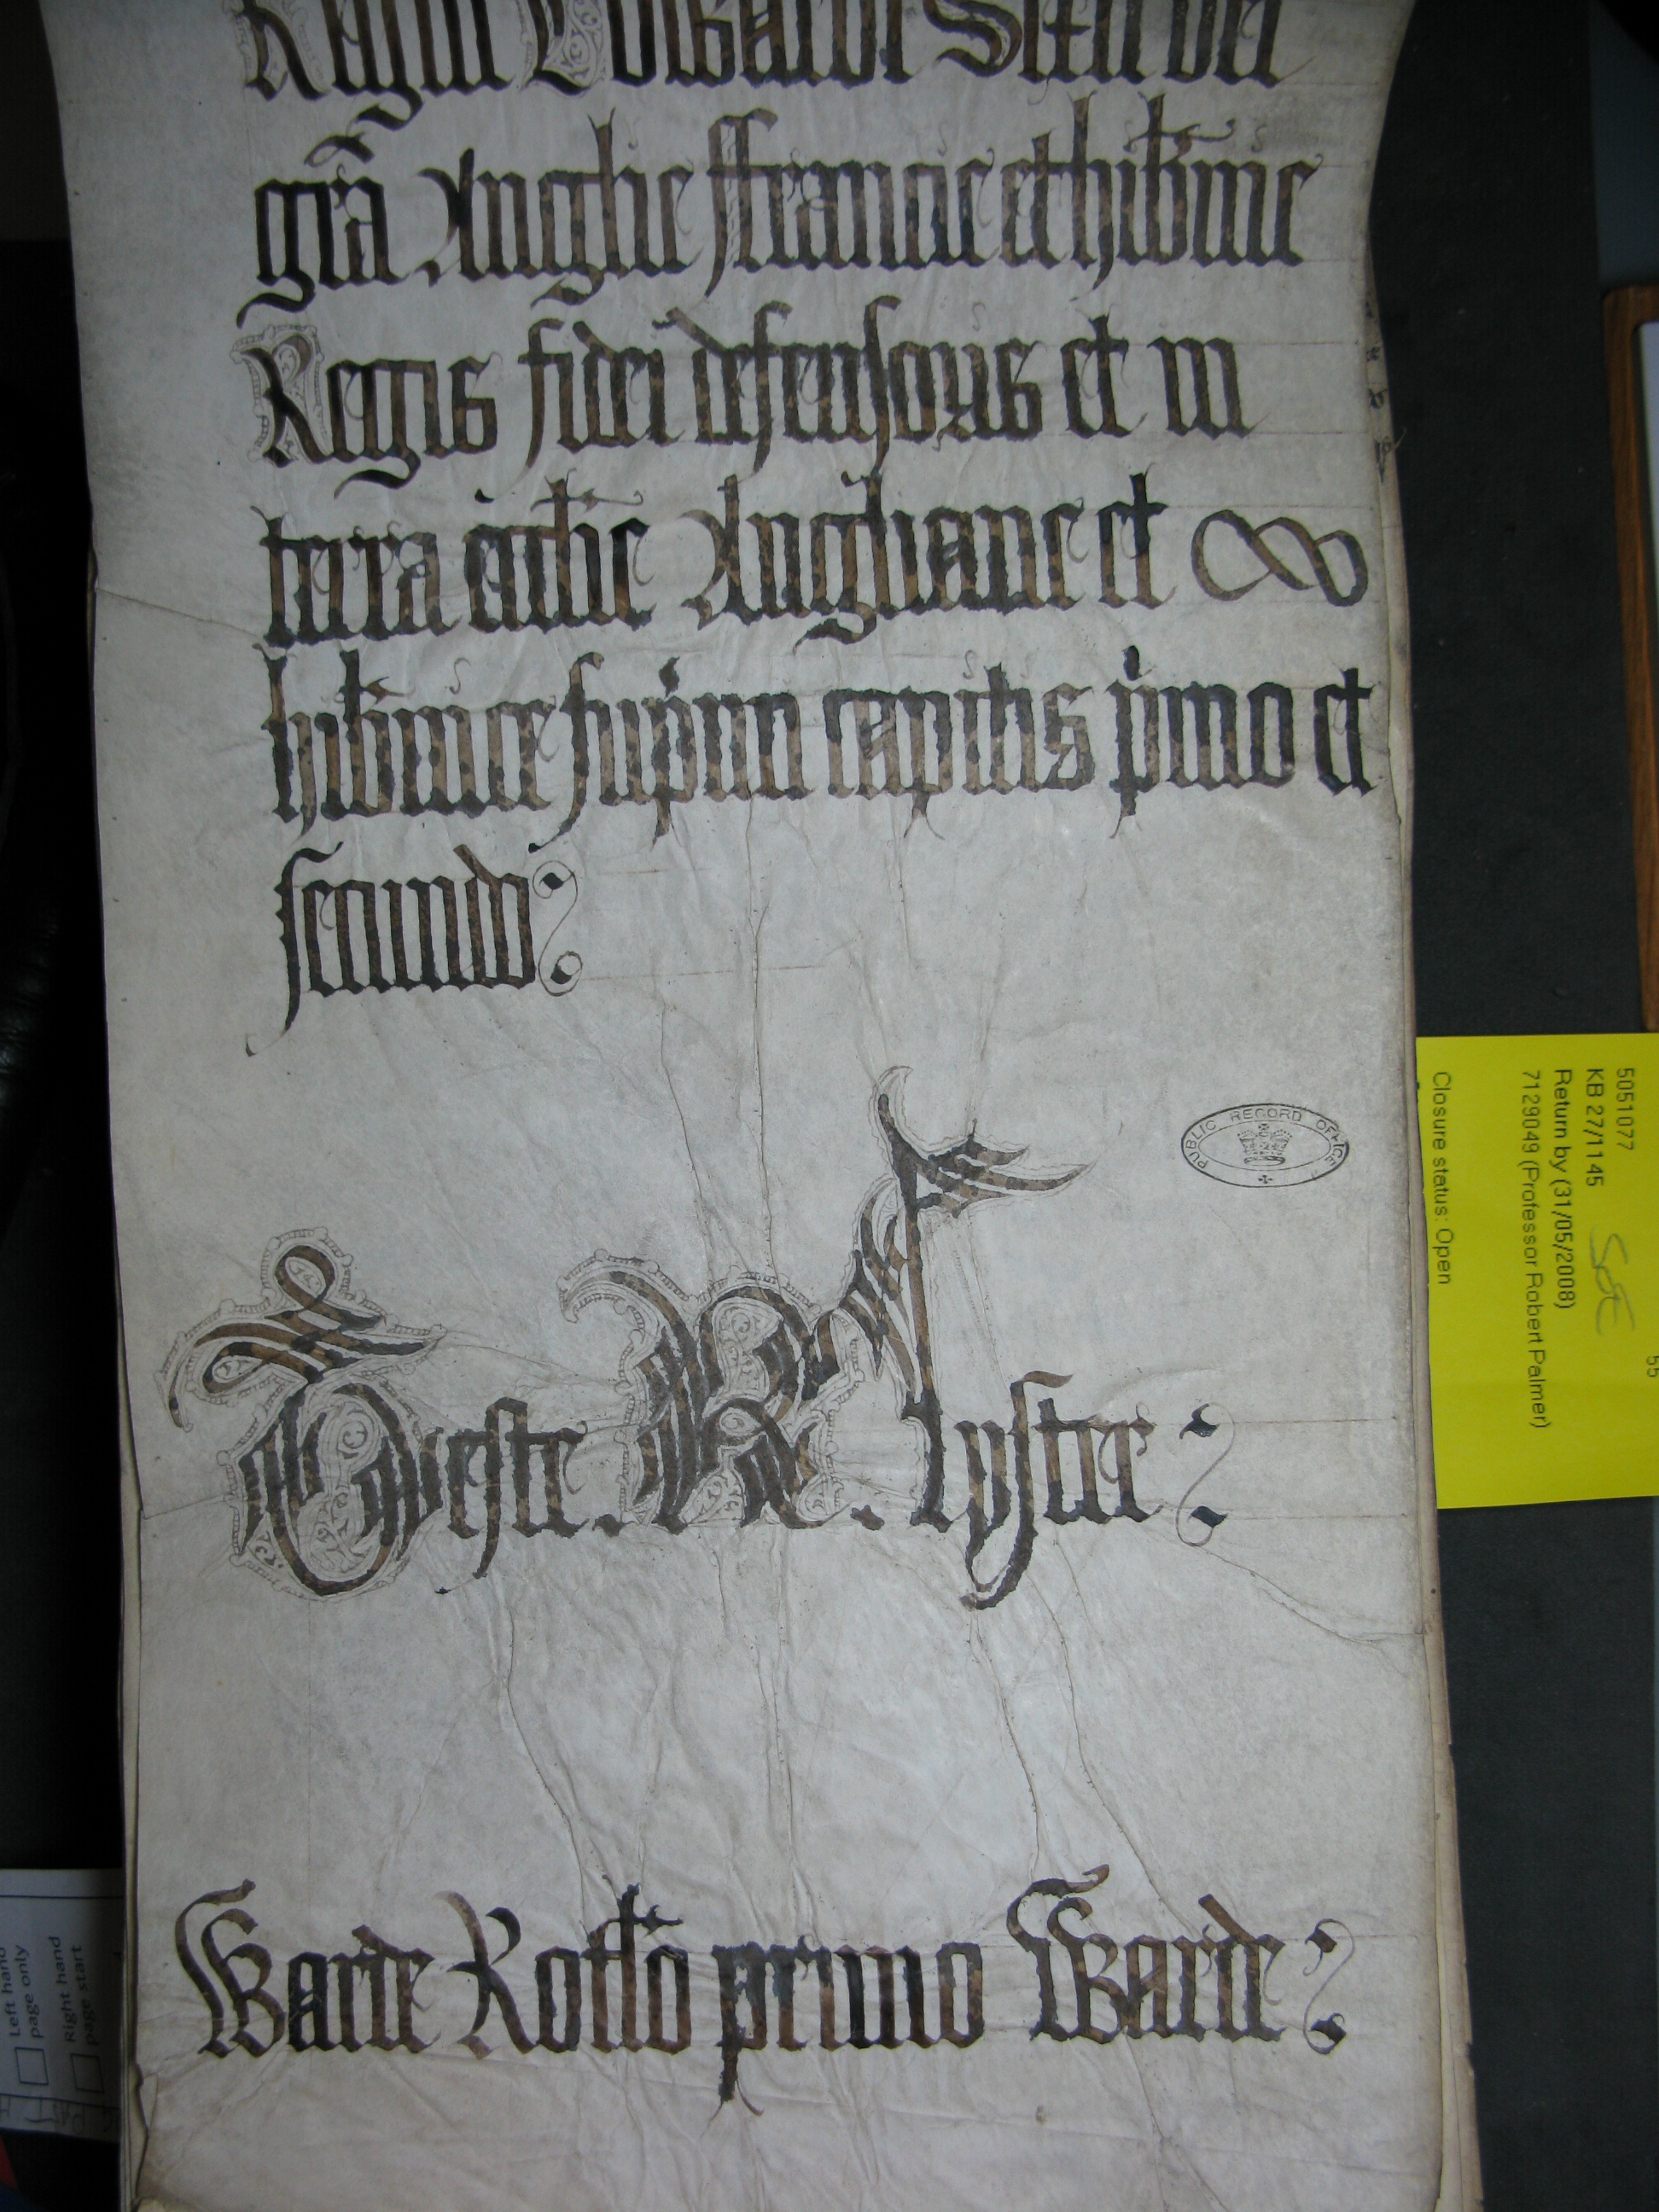 Regni Edwardi Sexti dei
gr̃a Anglie ffrancie et hib̃nie
Regis fidei defensoris et in
terra eccl̃ie Anglicane et
hib̃nice sup̃mi capitis pⁱmo et
secundo
Teste R. lyster
Warde Rotl̃o primo Warde
PUBLIC RECORD OFFICE
5051077
KB 27/1145
Return by (31/05/2008)
7129049 (Professor Robert Palmer)
Closure status: Open
55
Left hand
page only
Right hand
page start